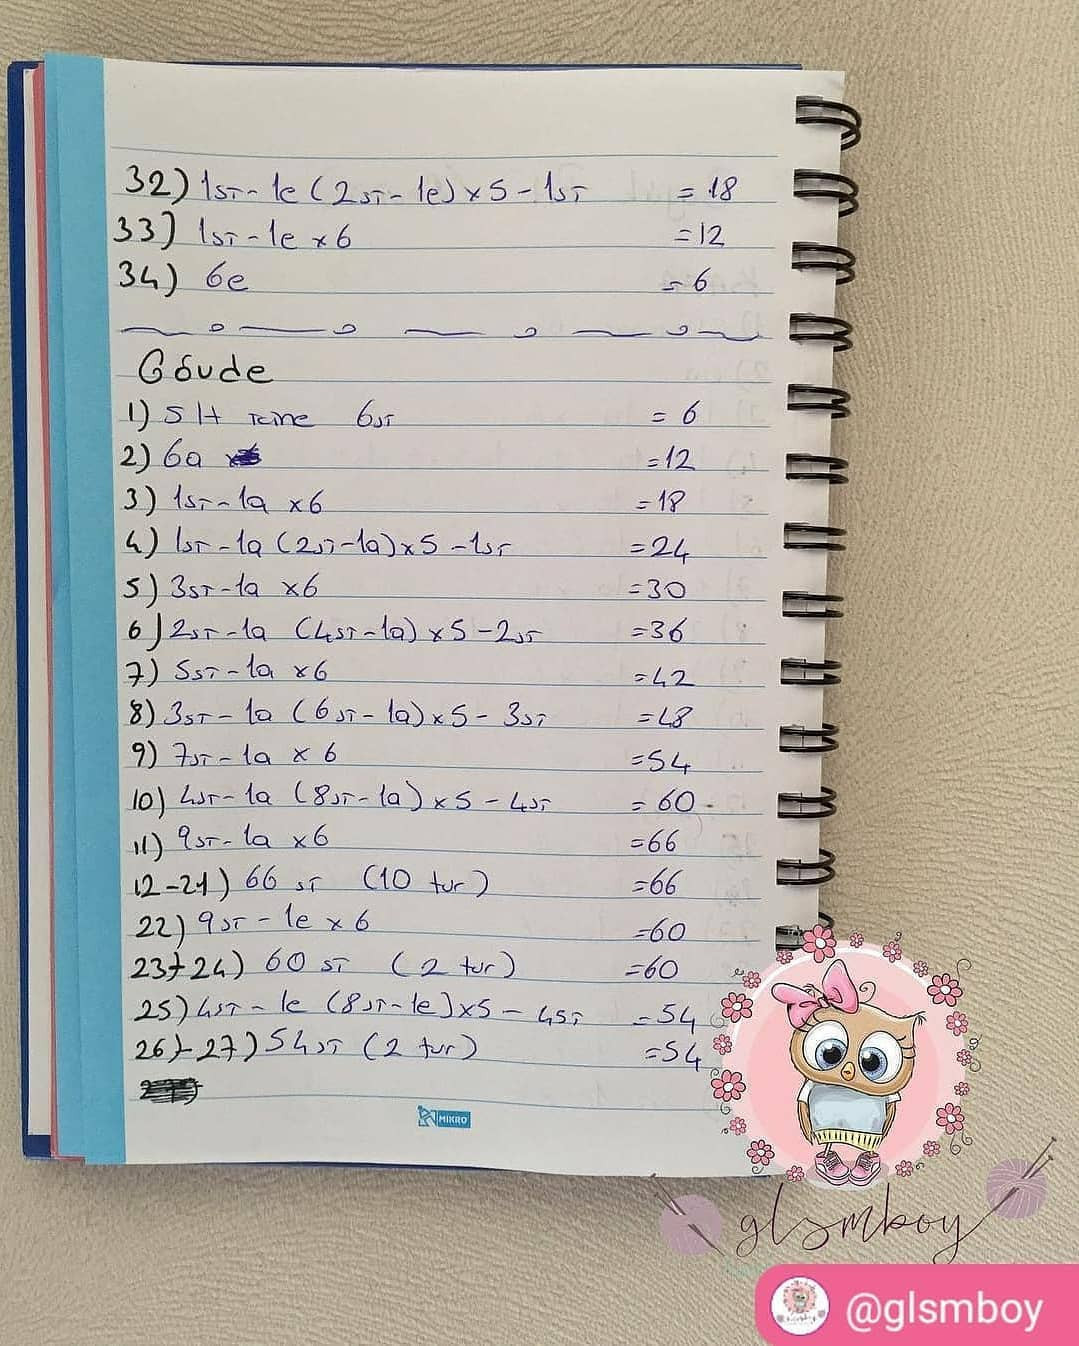 32) 1sı-1e (2sı-1e)x5-1sı =18
33) 1sı-1e x6 =12
34) 6e =6
Góvde
1) SH içine 6sı =6
2) 6a =12
3) 1sı-1a x6 =18
4) 1sı-1a (2sı-1a)x5-1sı =24
5) 3sı-1a x6 =30
6) 2sı-1a (4sı-1a)x5-2sı =36
7) 5sı-1a x6 =42
8) 3sı-1a (6sı-1a)x5-3sı =48
9) 7sı-1a x6 =54
10) 4sı-1a (8sı-1a)x5-4sı =60
11) 9sı-1a x6 =66
12-21) 66 sı (10 tur) =66
22) 9sı-1e x6 =60
23+24) 60 sı (2 tur) =60
25) 4sı-1e (8sı-1e)x5-4sı =54
26+27) 54sı (2 tur) =54
MIKRO
glsmboy
@glsmboy